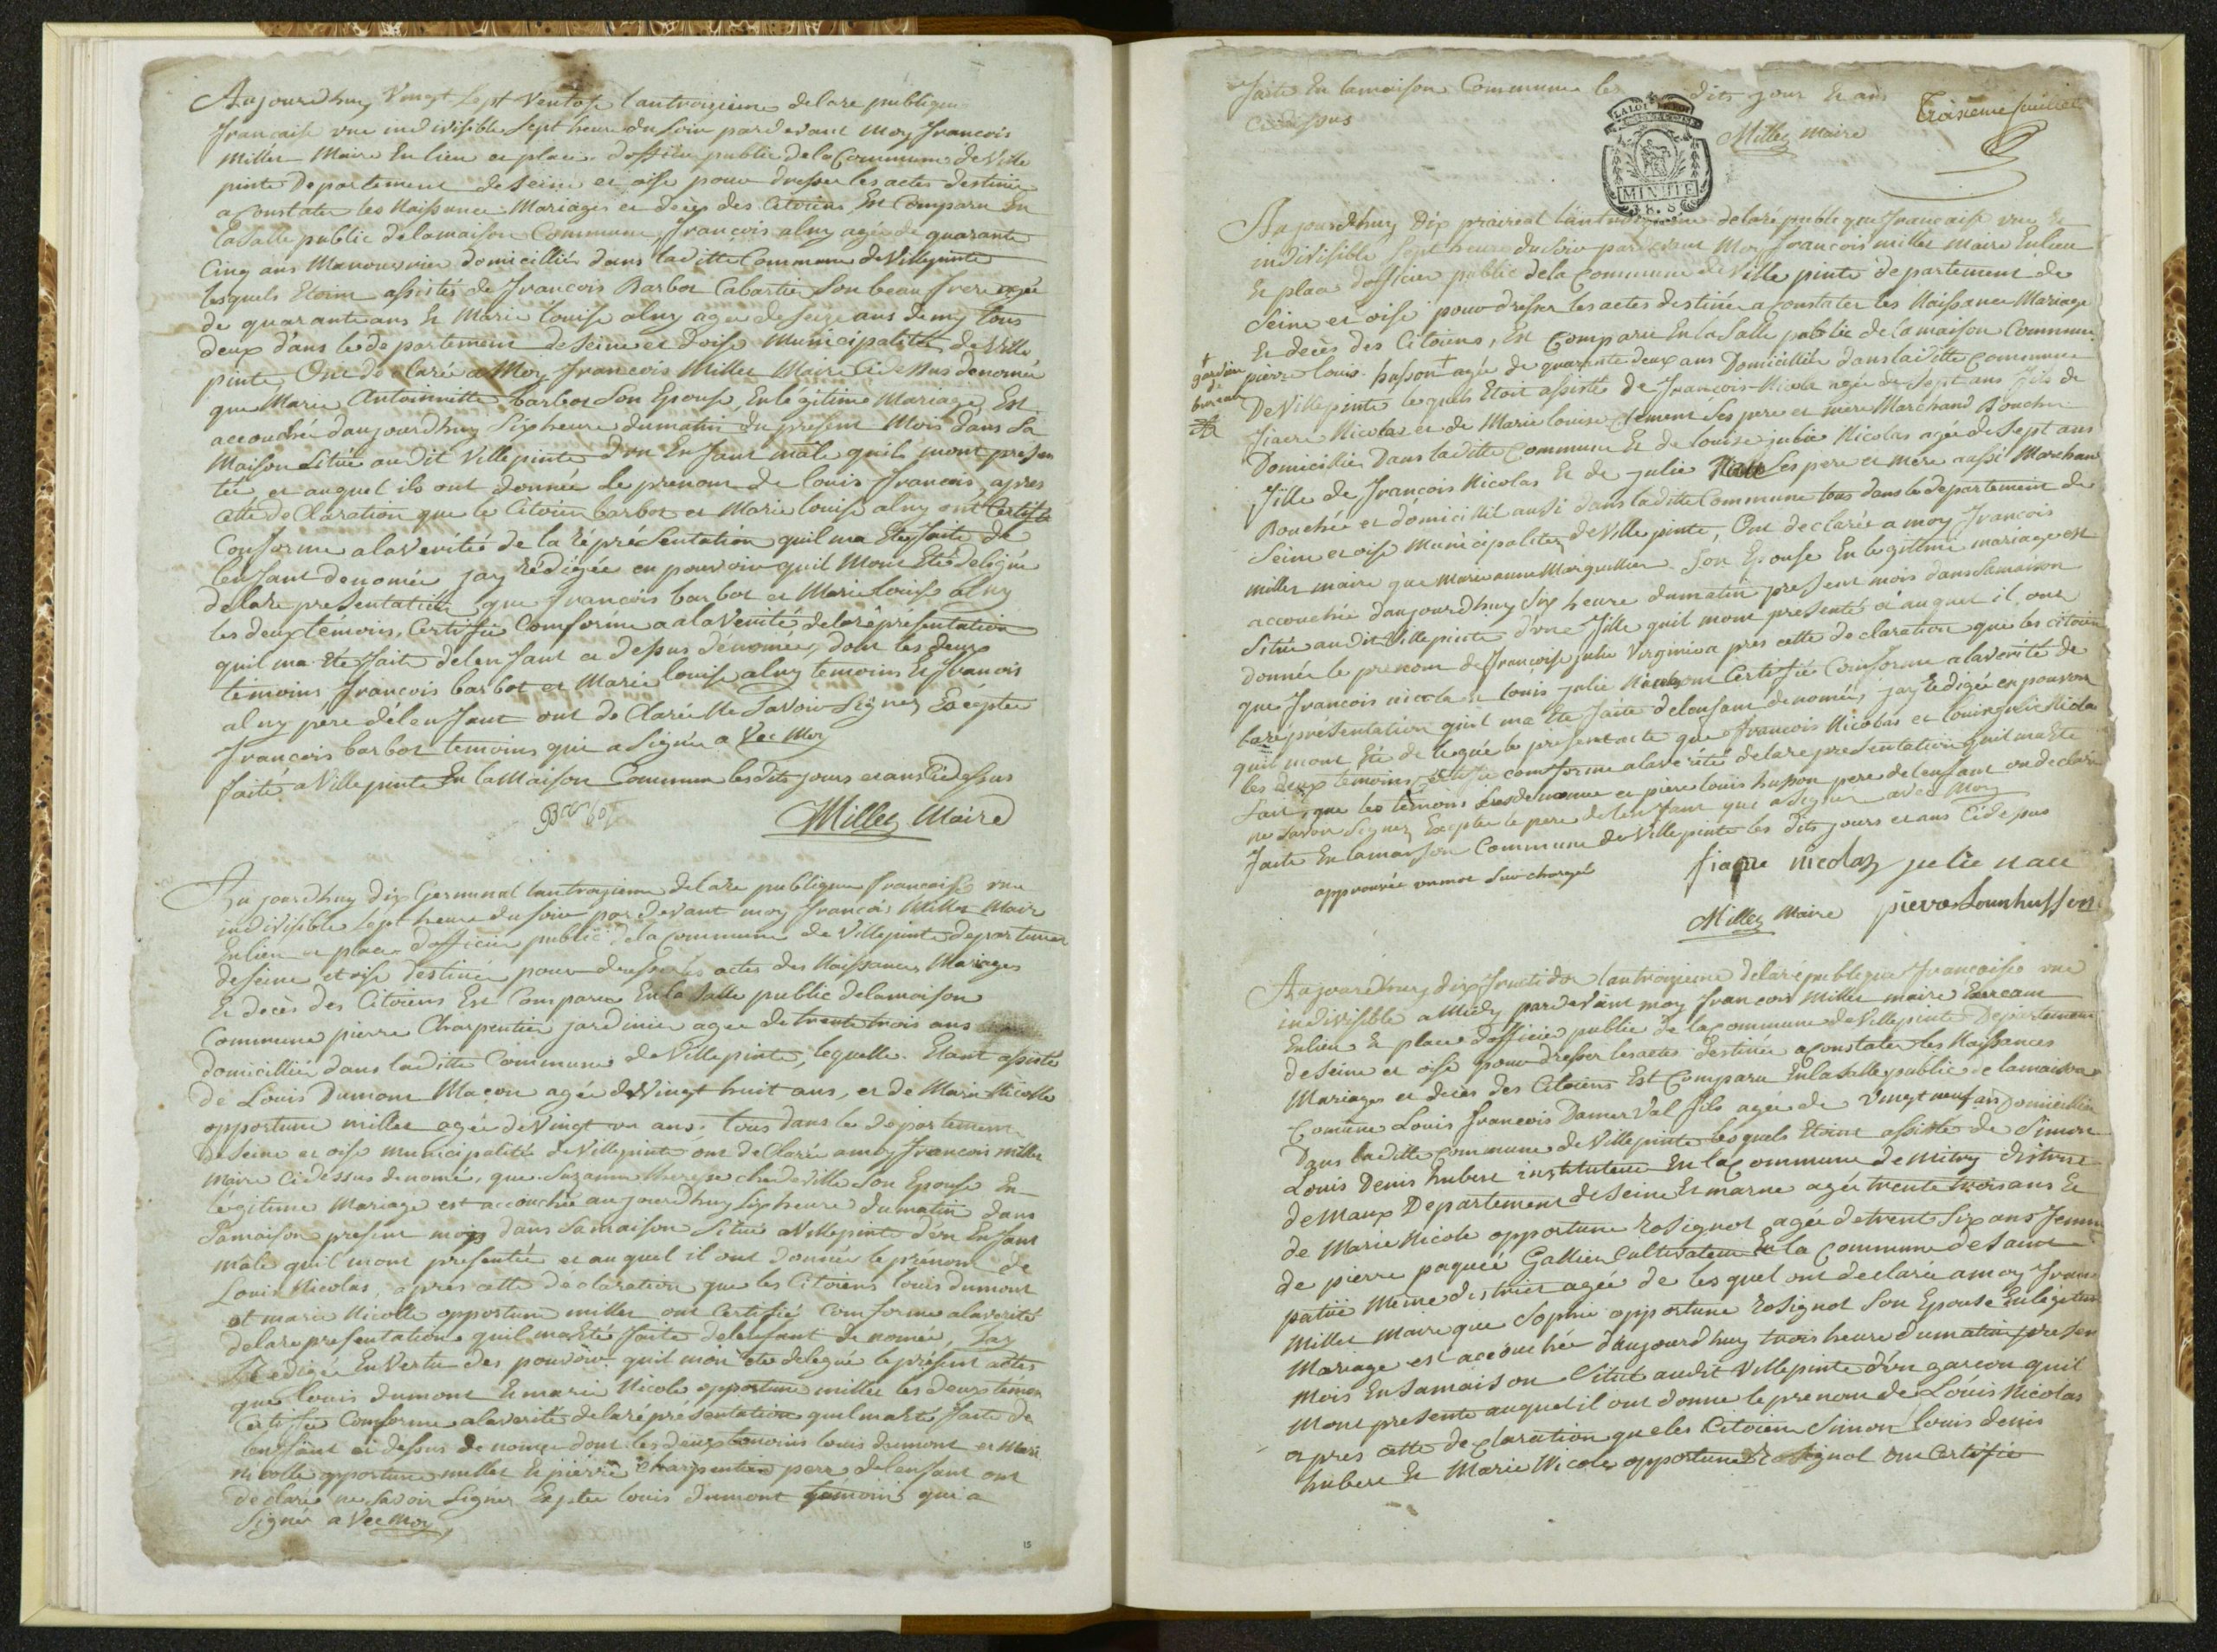 Aujourdhuy Vingt Sept Ventose lantroizieme delare publique
francaise une indivisible Sept heure du Soir pardevant moy francois
Miller Maire En lieu et place dofficier public de la Commune de Ville
pinte Departement de Seine et oise pour dresser les actes destinée
a Constater les Naissance Mariages et deces des Citoiens, Est Comparu En
la Salle public delamaison Commune, francois aluy agée de quarante
Cinq ans Manouvrier domicilliée dans laditte Commune de Villepinte
lesquels Etoint assistés de francois Barbot Cabartier Son beau frere agée
de quarante ans Et Marie louise aluy agee de Seize ans demy tous
deux dans le departement de Seine et doise Municipalité de Ville
pinte, Ont declaré a Moy francois Miller Maire Cidessus denomée
que Marie Antoinnette barbot Son Epouse, En legitime Mariage, Est
accouchée daujourdhuy Six heure dumatin du present Mois dans Sa
Maison Situé audit Villepinte d'un Enfant mâle quils mont présen
tée et auquel ils ont donnée le prenom de louis francois, apres
cette declaration que le Citoien barbot et Marie louise aluy ont Certifié
Conforme alaverité de la réprésentation quil ma Etée faite de
lenfant denomée jay rédigée en pouvoir quil Mont Eté deligué
delare presentation que francois barbot et Marie louise aluy
les deux témoins, Certifie Comforme a alaVérité delaréprésentation
quil ma Eté ffaite delenfant ci dessus dénomée, dont les deux
témoins francois barbot et Marie louise aluy temoins Et francois
aluy pere délenfant ont de Clarée Ne Savoir Signer, Exceptée
francois barbot temoins qui a Signée a Vec Moy
faite a Villepinte En la Maison Commun lesdits jours et ans Cidessus
Barbot Miller Maire
Aujourdhuy dix Germinal lantroizieme delare publique francaise une
indivisible Sept heure du Soir par devant moy francois Miller Maire
En lieu et place dofficier public dela Commune de Villepinte departement
de Seine et oise destinée pour dresser les actes des Naissances Mariages
Et deces des Citoiens Est Comparu En la Salle public delamaison
Commune pierre Charpentier jardinier agee de trente trois ans
domicillier dans laditte Commune de Villepinte, lequelle Etant assistée
de Louis Dumont Maçon agée de Vingt huit ans, et de Marie Nicolle
opportune miller agée de Vingt un ans. tous dans le departement
de Seine et oise municipalité de Villepinte ont declaré amoy francois miller
maire Cidessus denomé, que Suzanne therese chedeville Son Epouse En
légitime Mariage est accouchée aujourdhuy Six heure dumatin dans
Samaison present mois dans Samaison Situé a Villepinte d'un Enfant
mâle quil mont presentée et auquel il ont donnée le prénom de
Louis Nicolas, apres cette declaration que les Citoiens louis dumont
et marie Nicolle opportune miller ont Certifié Comforme alaverité
delare presentation quil ma Eté faite delenfant de nomée, Jay
Redigée En Vertu des pouvoir quil mon ete delegué le présent actes
que louis dumont Et marie Nicole opportune miller les deux temoin
Certifie Comforme alaverité delaréprésentation quil ma Eté faite de
lenfant ci dessus de nomée dont les deux temoins louis dumont et Marie
Nicolle opportune miller Et pierre Charpentier pere delenfant ont
declaré ne Savoir Signer Exptée louis Dumont temoin qui a
Signée a Vec Moy
15
faite En lamaison Commune les dits jour Et ans
Cidessus
Miller Maire
Troisieme feuillet
LA LOI LE ROI
MINUTE
Aujourdhuy Dix prairial lantroizieme delarépublique francaise une Et
indivisible Sept heure du Soir pardevant Moy francois miller maire En lieu
Et place dofficier public de la Commune de Ville pinte departement de
Seine et oise pour dresser les actes destinée a Constater les Naissance Mariage
Et deces des Citoiens, Est Comparu En la Salle public de lamaison Commune
pierre louis husson + agée de quarente deux ans Domicilliée dans laditte Commune
+
gardien
de
bureau
De Villepinte lequels Etoit assisté de francois Nicola agée de Sept ans fils de
fiacre Nicolas et de Marie louise Clement Ses pere et mere Marchand Boucher
Domicilliée Dans laditte Commune Et de louise julie Nicolas agée de Sept ans
fille de francois Nicolas Et de julie Naü Ses pere et mere aussi Marchand
Bouchée et domicillié aussi dans laditte Commune tous dans le departement de
Seine et oise municipalitez de Ville pinte, Ont declarée a moy francois
miller maire que marie anne Marguillier Son Epouse En legittime mariage est
accouchée daujourdhuy Six heure dumatin present mois dans Samaison
Située au dit Villepinte d'une fille quil mont presenté et auquel il ont
donnée le prenom de francoise julie Virginie apres cette declaration que les citoien
que francois nicola et louis julie Nicolas ont Certifié Comforme alaverité de
lareprésentation quil ma Ete faite delenfant denomée, jay Redigée en pouvoir
quil mont Eté de leguée le present acte que francois Nicolas et louise julie Nicolas
les deux temoins, certifie comforme alavérité delare presentation quil ma Ete
fait, que les témoins Susdenomée et pierre louis husson pere delenfant on declaré
ne Savoir Signer, Exceptée le pere delenfant qui a Signer avec Moy
faite En lamaison Commune de Villepinte les dits jours et ans Cidessus
approuvée un mot Surchargé
fiacre nicolas julie nau
Miller Maire pierre Louis husson
Aujourdhuy dix fructidor lantroizieme delarépublique francaise une
indivisible a Midy pardevant moy francois Miller maire
En lieu Et place dofficier public de la commune de Villepinte Departement
de Seine et oise pour dresser les actes destinée aconstater les Naissances
Mariages et deces des Citoiens Est Comparu En la Salle public de lamaison
Comune Louis francois Damerval fils agée de Vingt neuf ans Domicillié
Dans laditte Commune de Villepinte lesquels Etoint assisté de Simon
Louis Denis hubert instituteur En la Commune de Mitry district
de Maux Departement de Seine Et marne agée trente trois ans Et
de Marie Nicole opportune Rosignol agée detrent Six ans femme
de pierre paquié Gallier Cultivateur En la Commune de Saint
patüe Meme district agée de lesquel ont declarée amoy franc
Miller Maire que Sophie opportune Rosignol Son Epouse En legetime
Mariage est accouchée daujourdhuy trois heure dumatin presen
Mois En Samaison Situé audit Villepinte d'un garcon quil
Mont presente auquel il ont donne le prenom de Louis Nicolas
apres cette declaration que les Citoien Simon louis denis
hubert Et Marie Nicole opportune Rosignol ont Certifie